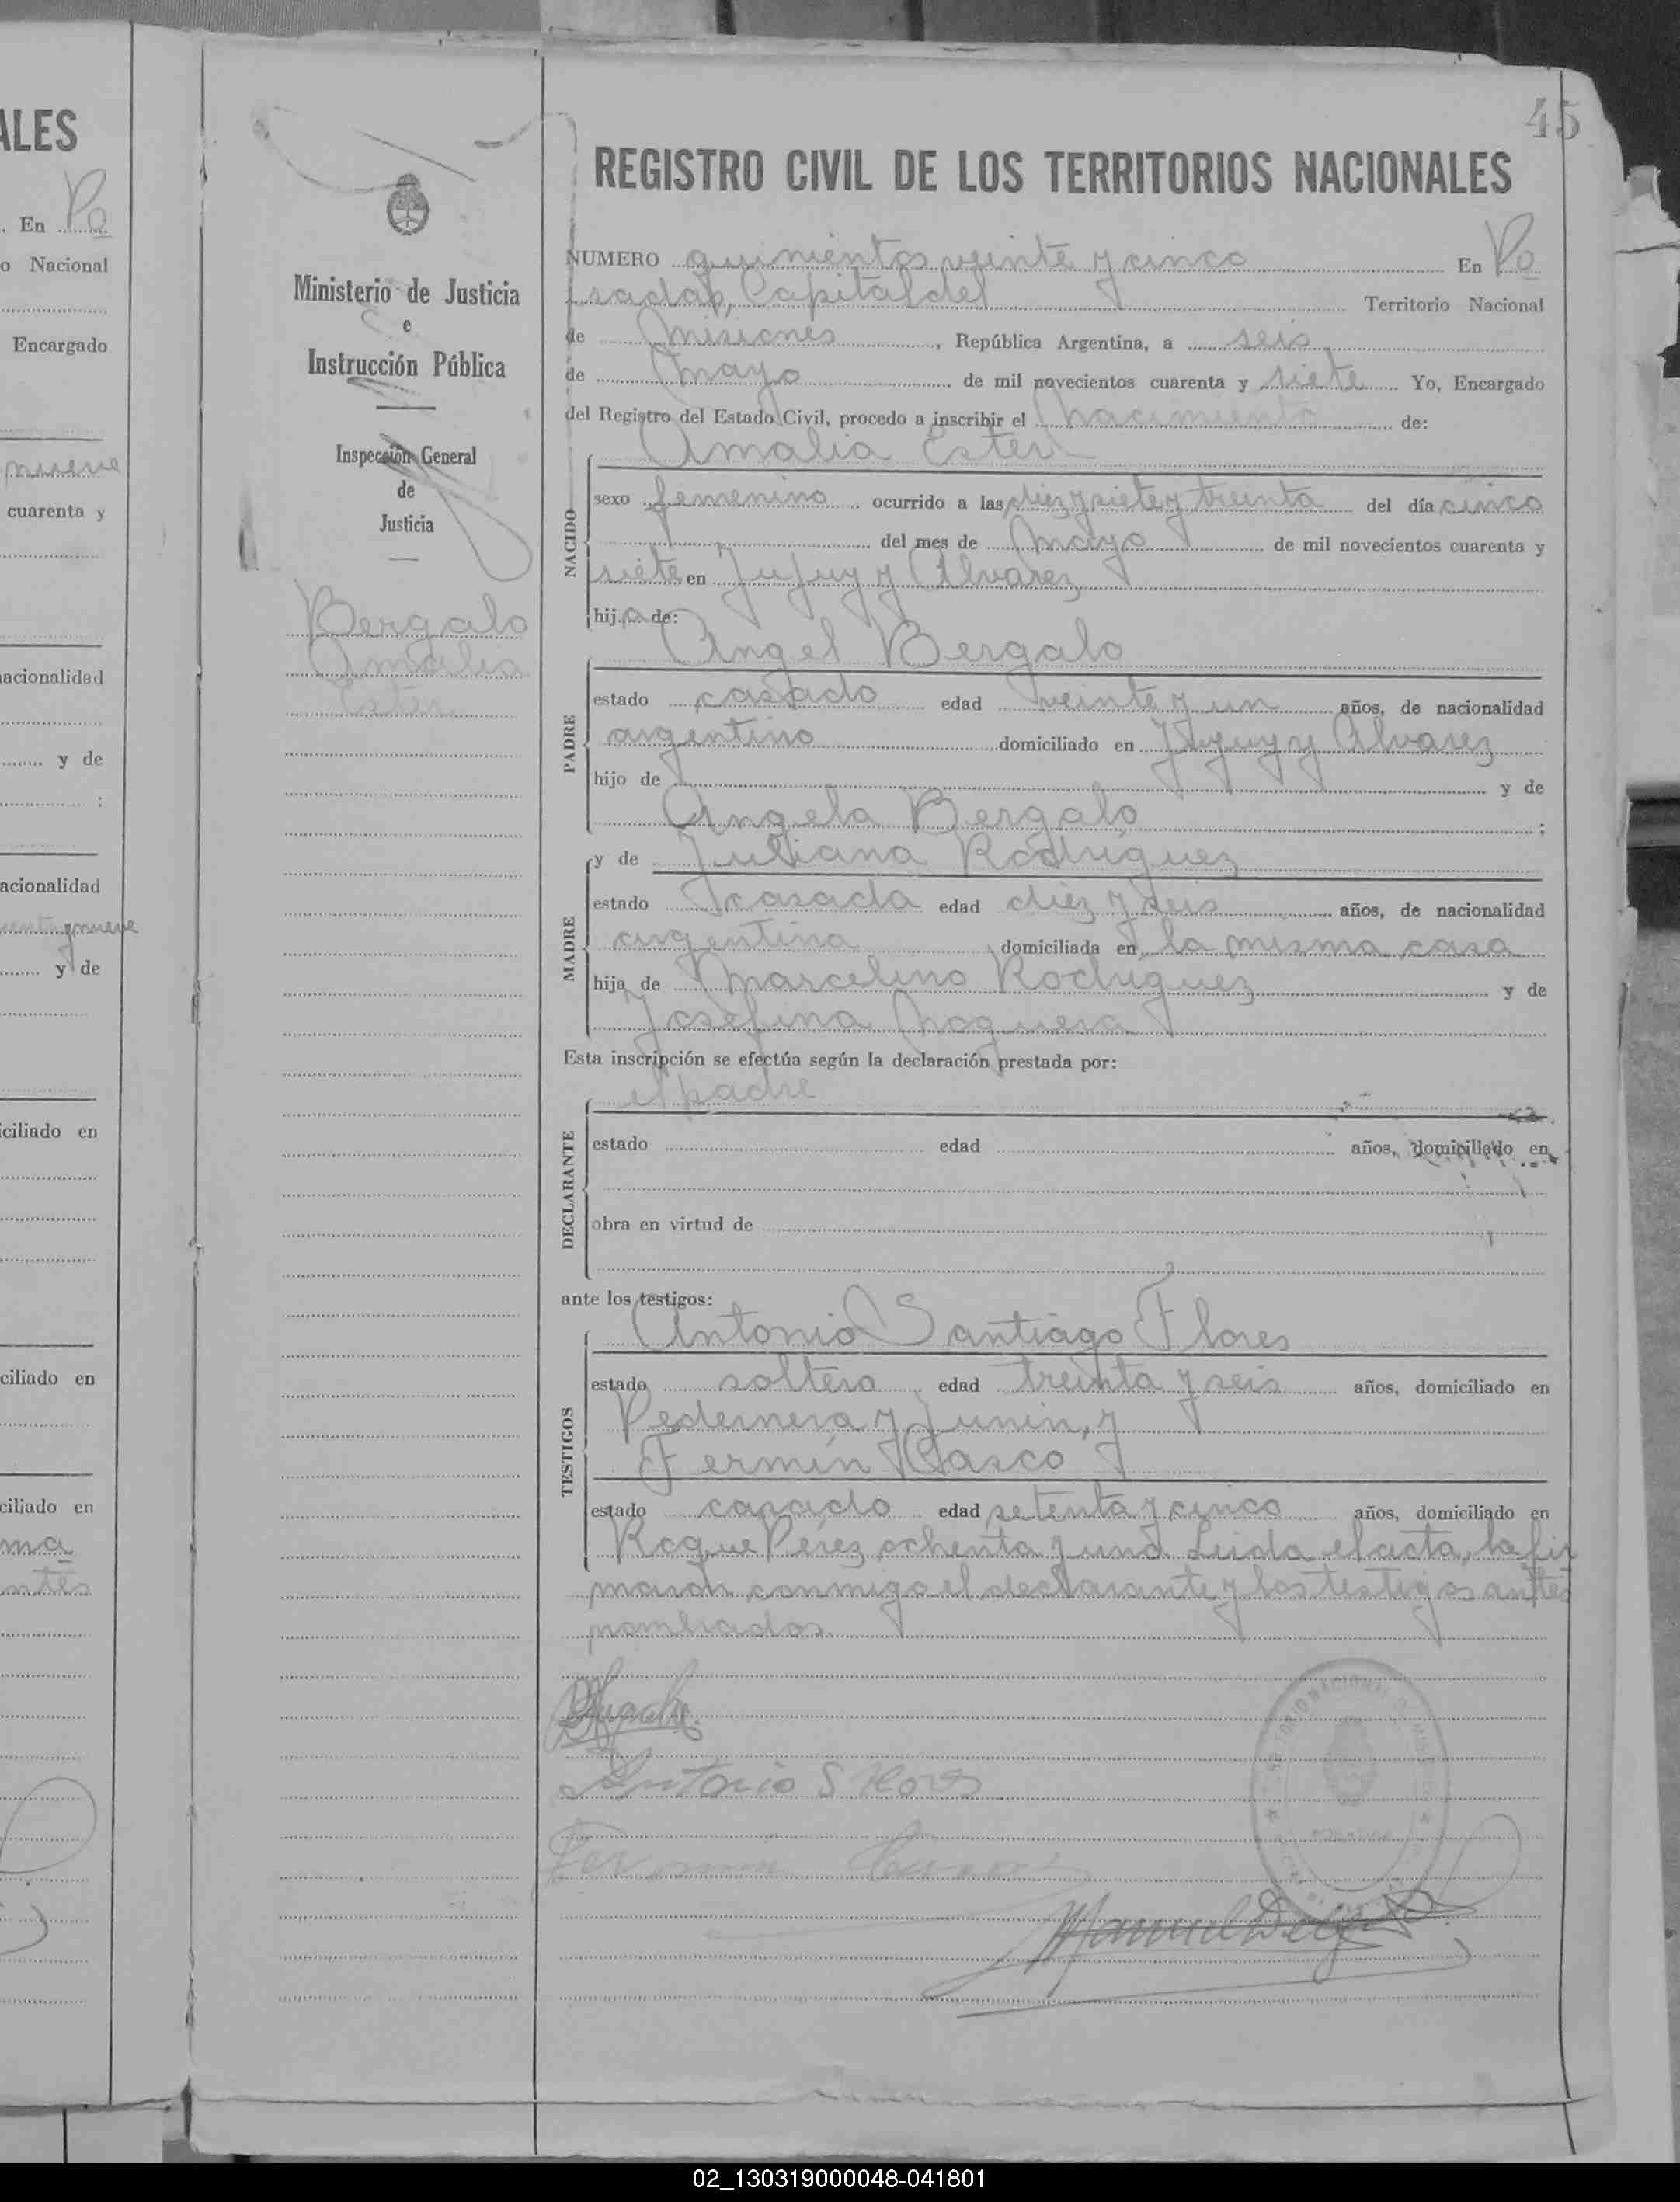 45
ALES
REGISTRO CIVIL DE LOS TERRITORIOS NACIONALES
. En Po
o Nacional
Encargado
nueve
cuarenta y
nacionalidad
y de
:
acionalidad
y nueve
y de
iciliado en
ciliado en
ciliado en
ma
antes
Ministerio de Justicia
e
Instrucción Pública
Inspección General
de
Justicia
Bergalo
Amalia
Ester
NUMERO quinientos veinte y cinco En Po
sadas, Capital del Territorio Nacional
de Misiones, República Argentina, a seis
de Mayo de mil novecientos cuarenta y siete Yo, Encargado
del Registro del Estado Civil, procedo a inscribir el Nacimiento de:
Amalia Ester
NACIDO
sexo femenino ocurrido a las diez y siete y treinta del día cinco
del mes de Mayo de mil novecientos cuarenta y
siete en Jujuy y Alvarez
hija de:
Angel Bergalo
PADRE
estado casado edad veinte y un años, de nacionalidad
argentino domiciliado en Jujuy y Alvarez
hijo de y de
Angela Bergalo ;
y de Juliana Rodriguez
MADRE
estado casada edad diez y seis años, de nacionalidad
argentina domiciliada en la misma casa
hija de Marcelino Rodriguez y de
Josefina Noguera
Esta inscripción se efectúa según la declaración prestada por:
el padre
DECLARANTE
estado edad años, domiciliado en
obra en virtud de
ante los testigos:
Antonio Santiago Flores
TESTIGOS
estado soltero edad treinta y seis años, domiciliado en
Pedernera y Junin, y
Fermín Casco
estado casado edad setenta y cinco años, domiciliado en
Roque Pérez ochenta y uno Leida el acta, la fir
maron conmigo el declarante y los testigos antes
nombrados.
Antonio S Flores
Fermin
Manuel
02_130319000048-041801